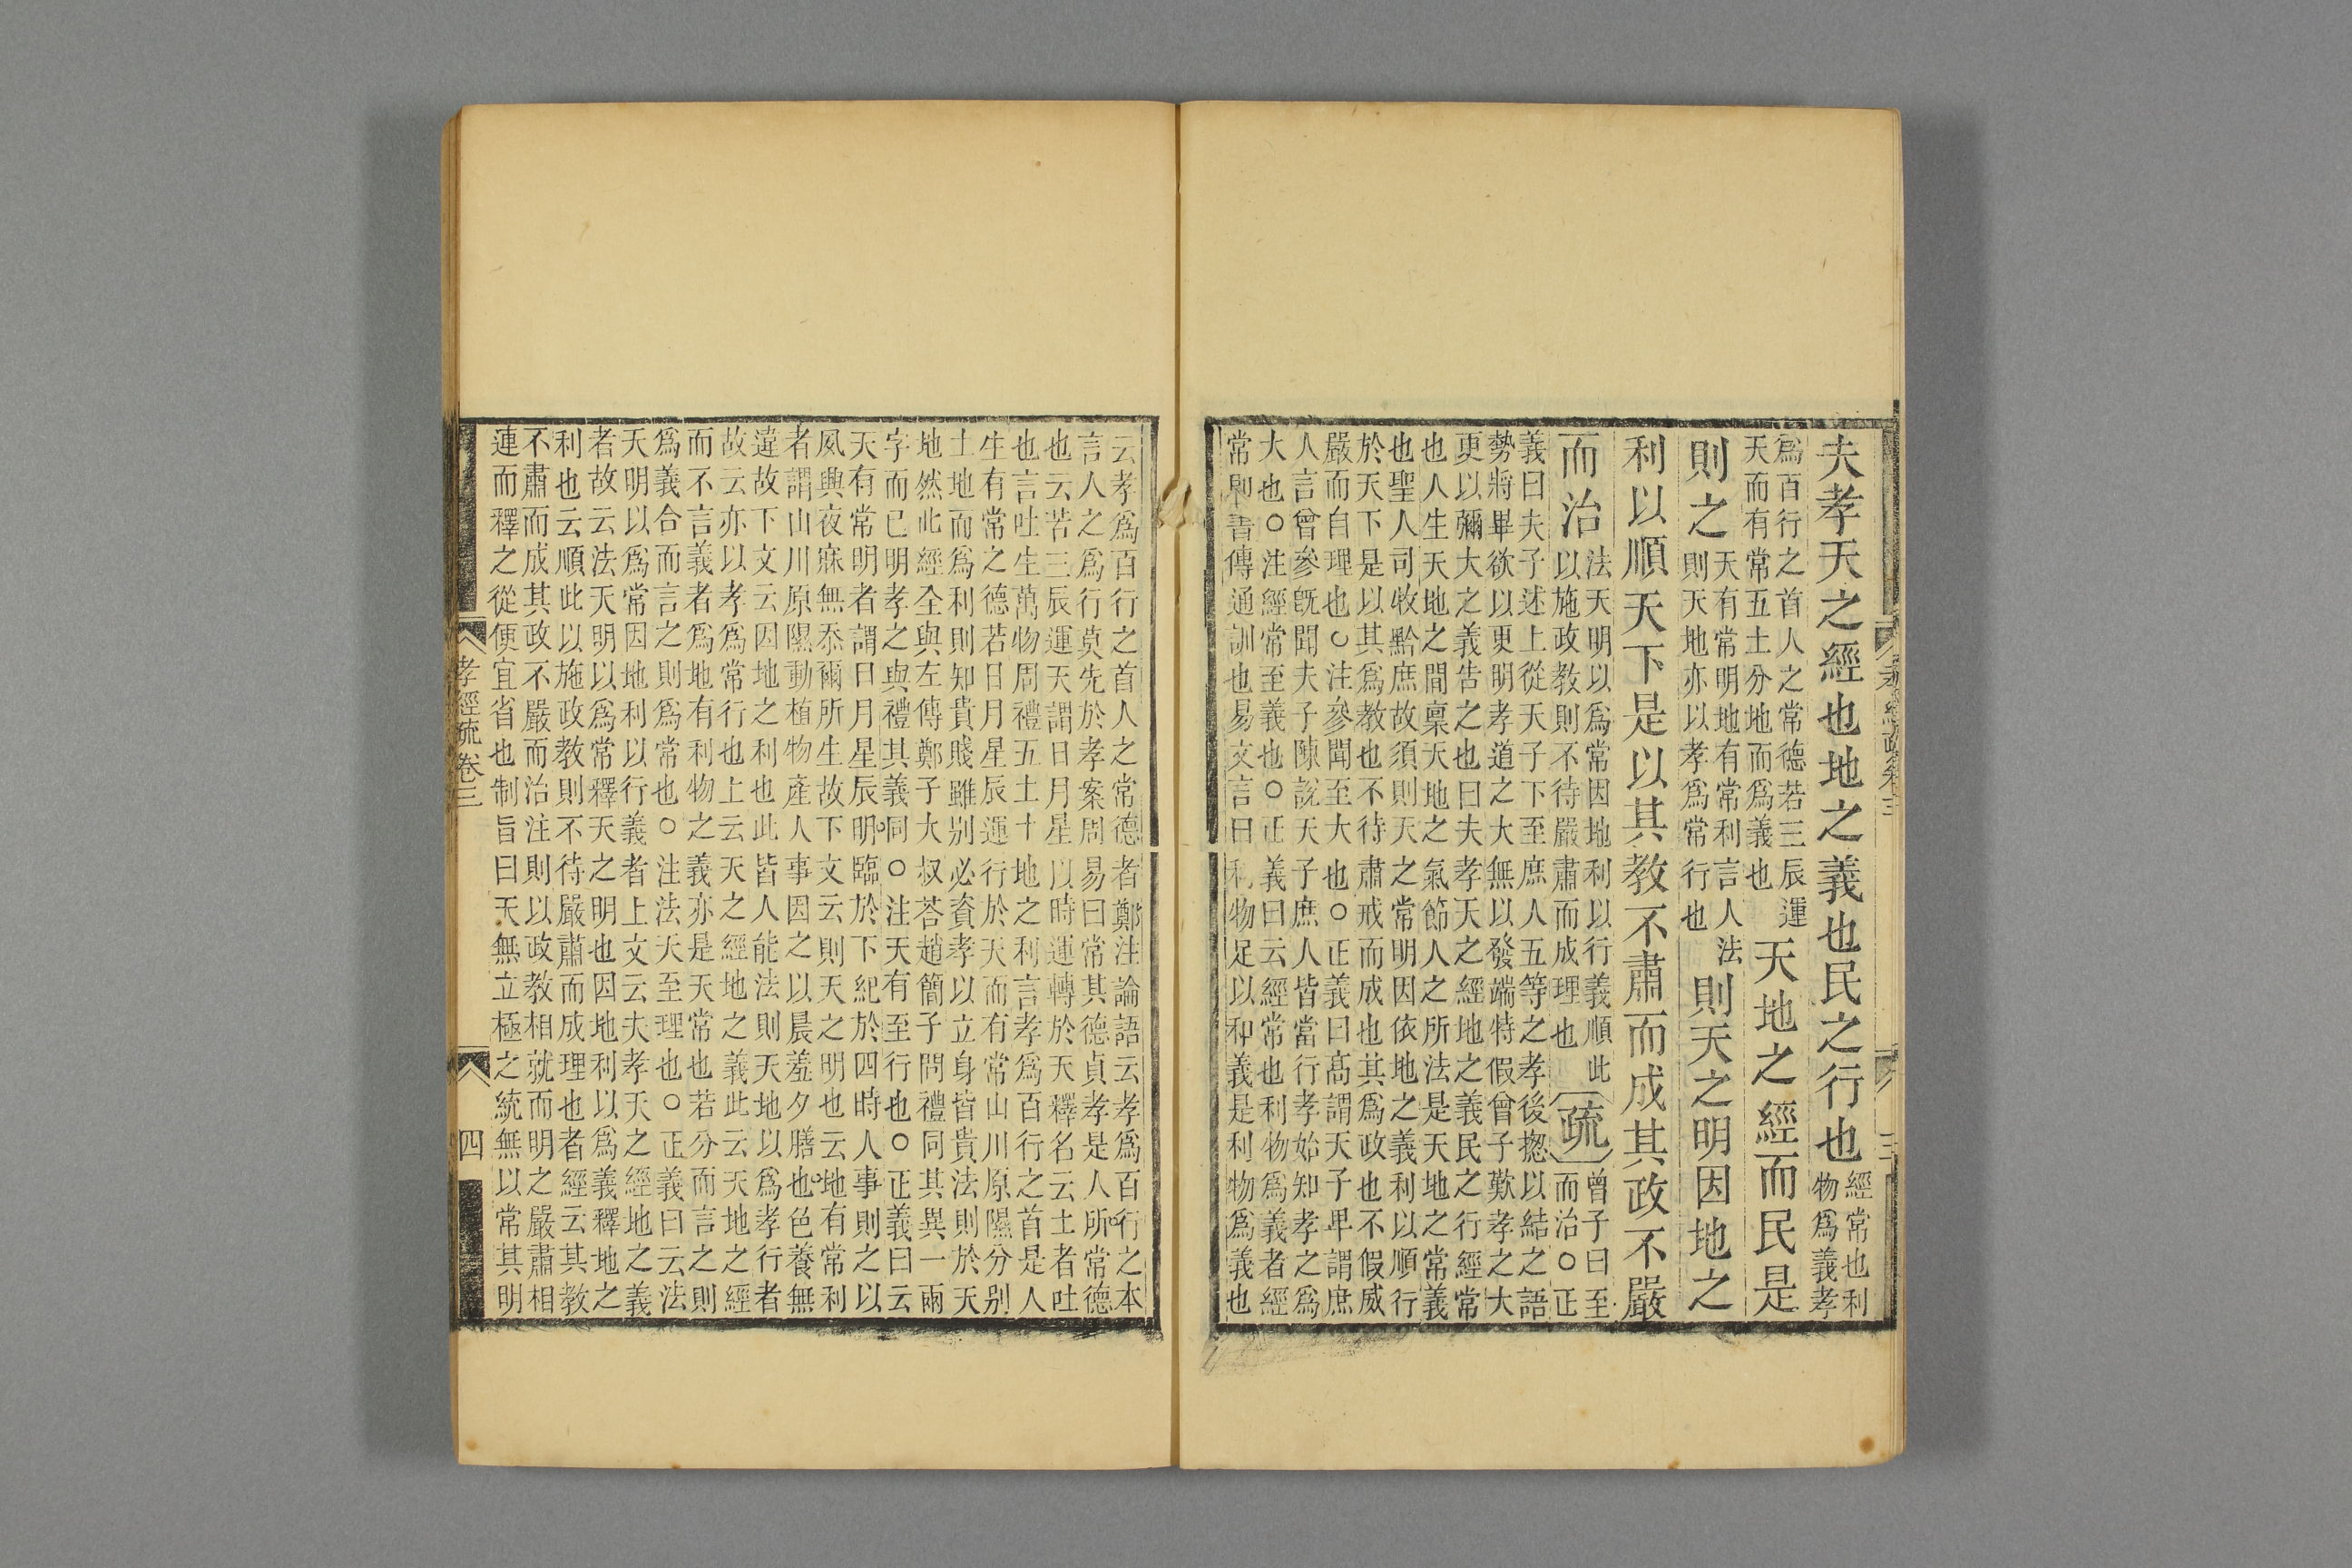 夫孝天之經也地之義也民之行也經常也利物爲義孝
爲百行之首人之常德若三辰運天而有常五土分地而爲義也天地之經而民是
則之天有常明地有常利言人法則天地亦以孝爲常行也則天之明因地之
利以順天下是以其教不肅而成其政不嚴
而治法天明以爲常因地利以行義順此以施政教則不待嚴肅而成理也疏曾子曰至而治○正
義曰夫子述上從天子下至庶人五等之孝後揔以結之語
勢將畢欲以更明孝道之大無以發端特假曾子歎孝之大
更以彌大之義告之也曰夫孝天之經地之義民之行經常
也人生天地之間稟天地之氣節人之所法是天地之常義
也聖人司牧黔庶故須則天之常明因依地之義利以順行
於天下是以其爲教也不待肅戒而成也其爲政也不假威
嚴而自理也○注參聞至大也○正義曰高謂天子卑謂庶
人言曾參旣聞夫子陳說天子庶人皆當行孝始知孝之爲
大也○注經常至義也○正義曰云經常也利物爲義者經
常卽書傳通訓也易文言曰利物足以和義是利物爲義也
孝經疏卷三
三
云孝爲百行之首人之常德者鄭注論語云孝爲百行之本
言人之爲行莫先於孝案周易曰常其德貞孝是人所常德
也云若三辰運天謂日月星以時運轉於天釋名云土者吐
也言吐生萬物周禮五土十地之利言孝爲百行之首是人
生有常之德若日月星辰運行於天而有常山川原隰分别
土地而爲利則知貴賤雖别必資孝以立身皆貴法則於天
地然此經全與左傳鄭子大叔荅趙簡子問禮同其異一兩
字而已明孝之與禮其義同○注天有至行也○正義曰云
天有常明者謂日月星辰明臨於下紀於四時人事則之以
夙興夜寐無忝爾所生故下文云則天之明也云地有常利
者謂山川原隰動植物產人事因之以晨羞夕膳也色養無
違故下文云因地之利也此皆人能法則天地以爲孝行者
故云亦以孝爲常行也上云天之經地之義此云天地之經
而不言義者爲地有利物之義亦是天常也若分而言之則
爲義合而言之則爲常也○注法天至理也○正義曰云法
天明以爲常因地利以行義者上文云夫孝天之經地之義
者故云法天明以爲常釋天之明也因地利以爲義釋地之
利也云順此以施政教則不待嚴肅而成理也者經云其教
不肅而成其政不嚴而治注則以政教相就而明之嚴肅相
連而釋之從便宜省也制旨曰天無立極之統無以常其明
孝經疏卷三
四